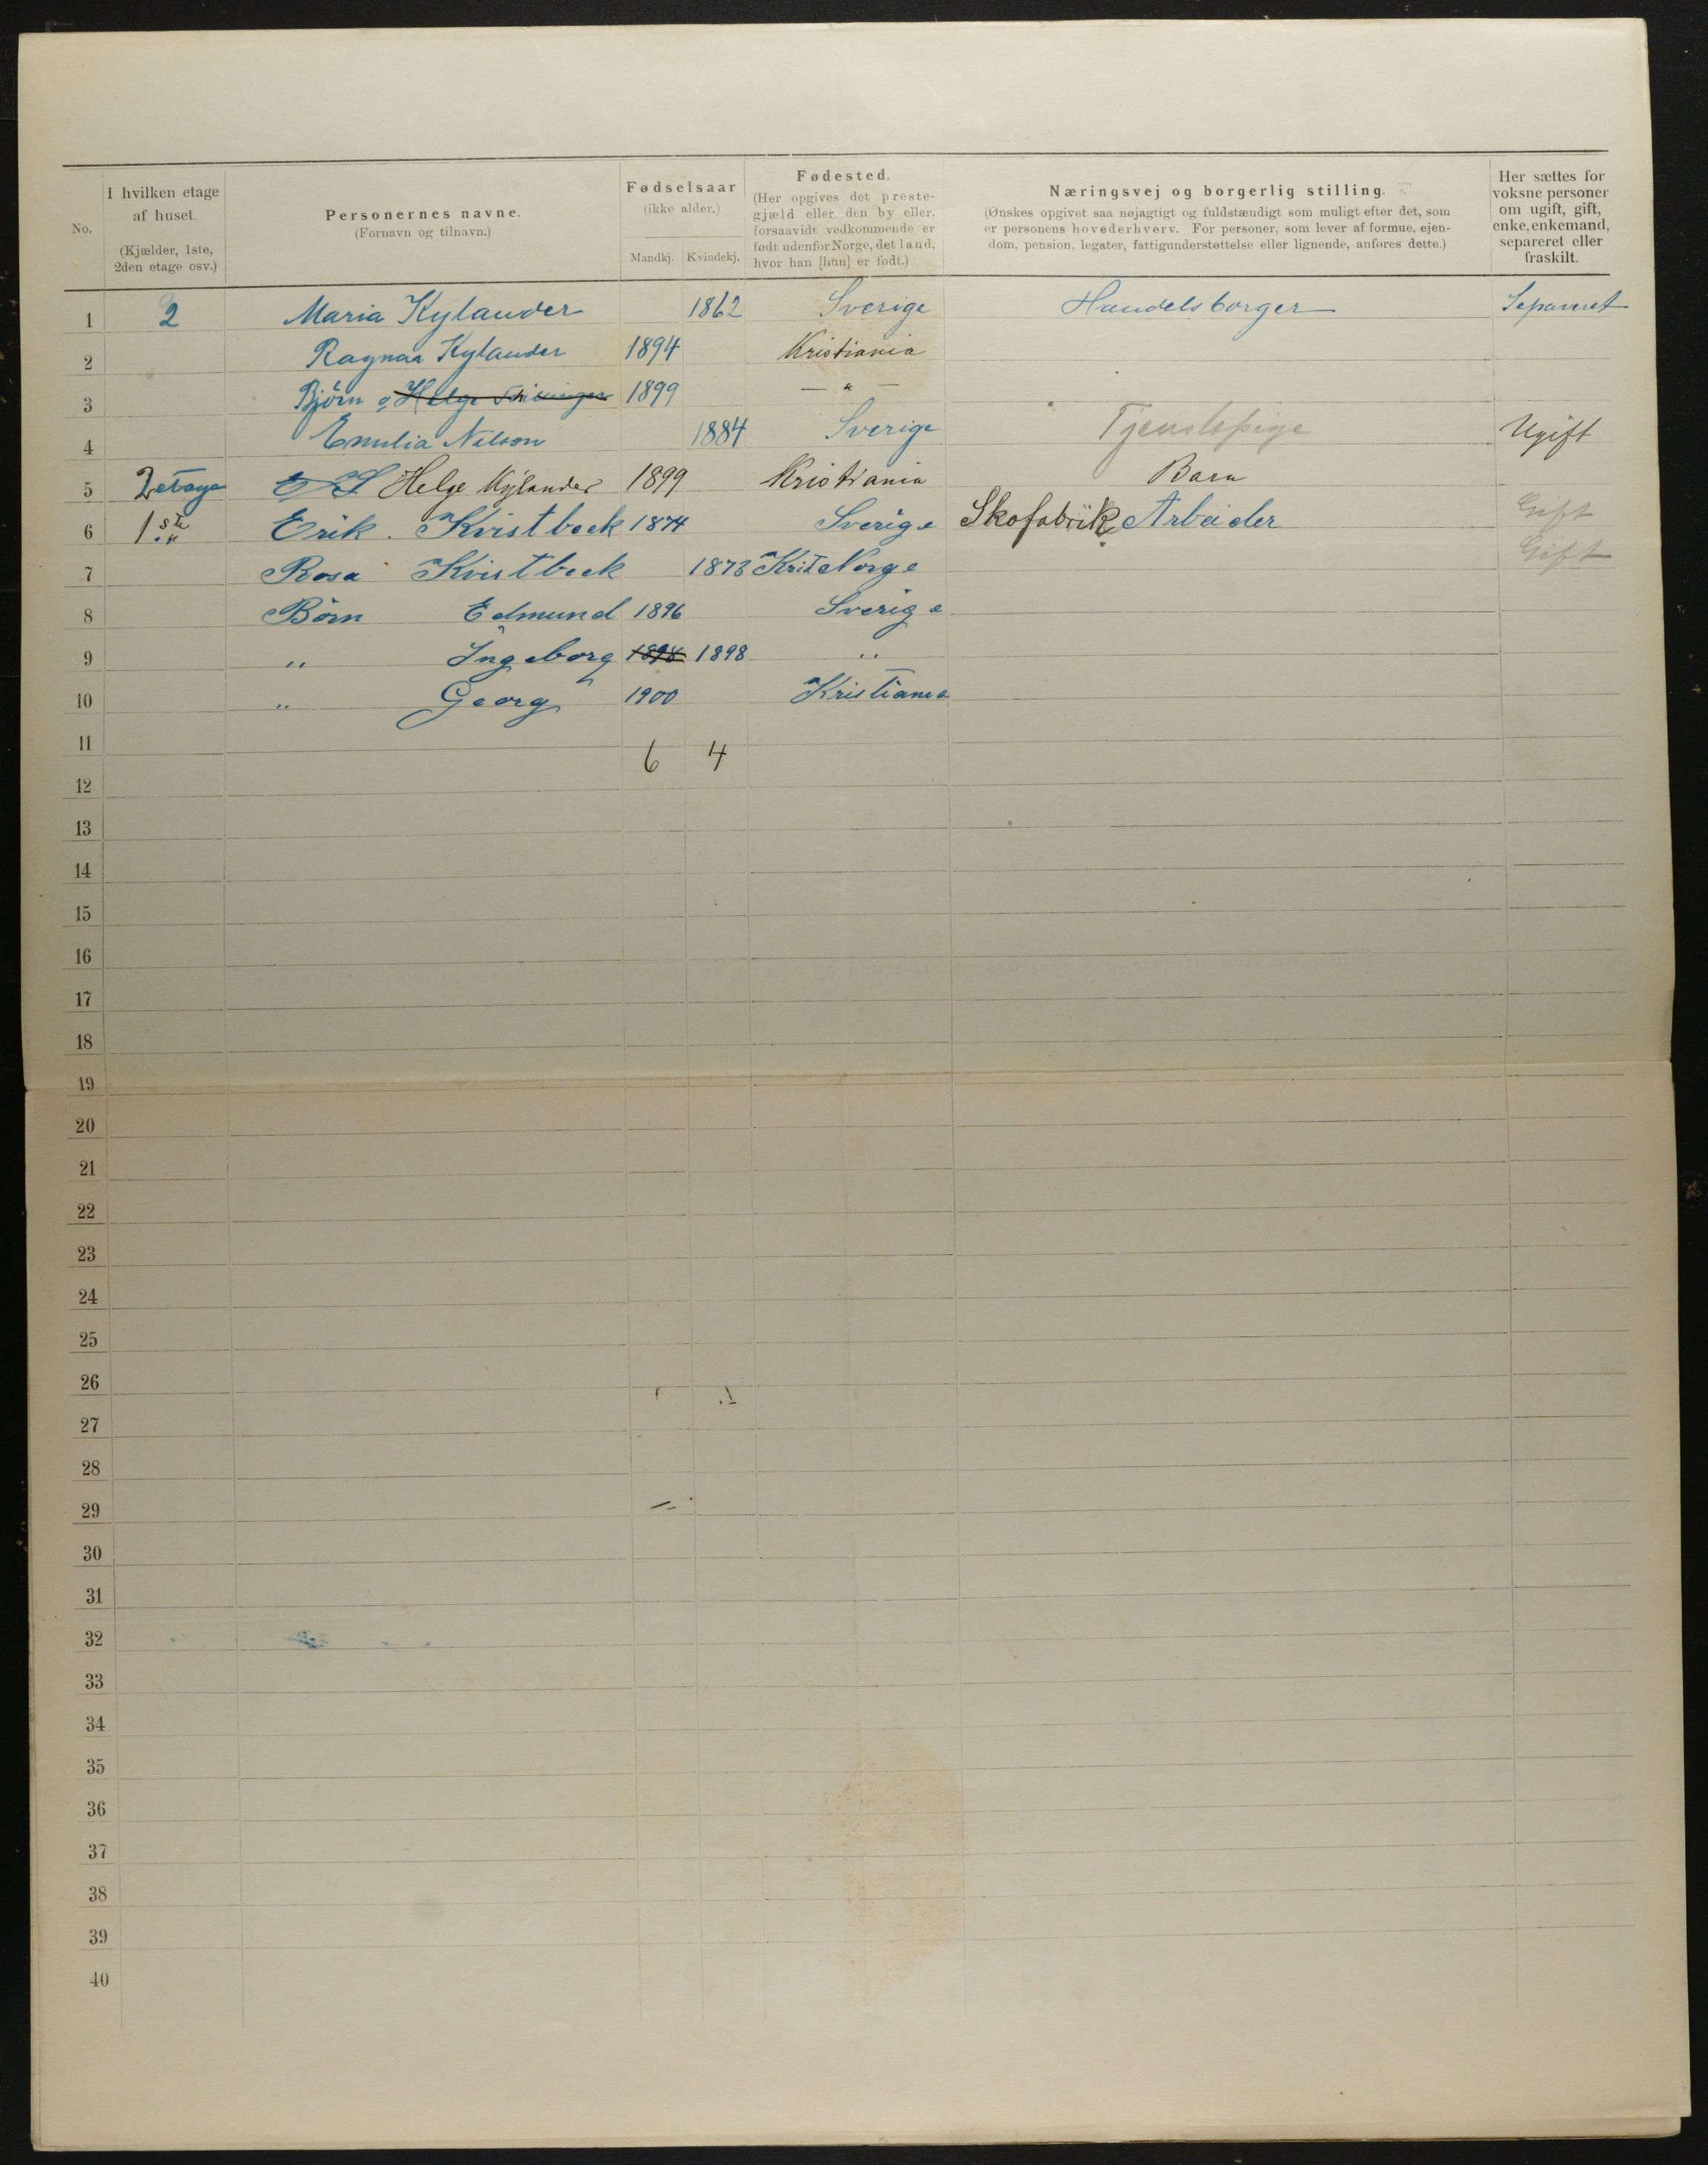 No.
I hvilken etage
af huset.
(Kjælder, 1ste,
2den etage osv.)
Personernes navne.
(Fornavn og tilnavn.)
Fødselsaar
(ikke alder.)
Mandkj. Kvindekj.
Fødested.
(Her opgives det preste-
gjæld eller den by eller,
forsaavidt vedkommende er
født udenfor Norge, det land,
hvor han [hun] er født.)
Næringsvej og borgerlig stilling.
(Ønskes opgivet saa nøjagtigt og fuldstændigt som muligt efter det, som
er personens hovederhverv. For personer, som lever af formue, ejen-
dom, pension, legater, fattigunderstøttelse eller lignende, anføres dette.)
Her sættes for
voksne personer
om ugift, gift,
enke, enkemand,
separeret eller
fraskilt.
1 2 Maria Kylander 1862 Sverige Handelsborger Separeret
2 Ragnar Kylander 1894 Kristiania
3 Bjørn o Helge 1899 — " —
4 Emilia Nilson 1884 Sverige Tjenestepige Ugift
5 2 etage Helge Kylander 1899 Kristiania Barn
6 1ste " Erik Kvistbeck 1874 Sverige Skofabrik Arbeider Gift
7 Rosa Kvistbeck 1873 Norge Gift
8 Börn Edmund 1896 Sverige
9 " Ingeborg 1898 1898 "
10 " Georg 1900 Kristiania
11 6 4
12
13
14
15
16
17
18
19
20
21
22
23
24
25
26
27
28
29
30
31
32
33
34
35
36
37
38
39
40